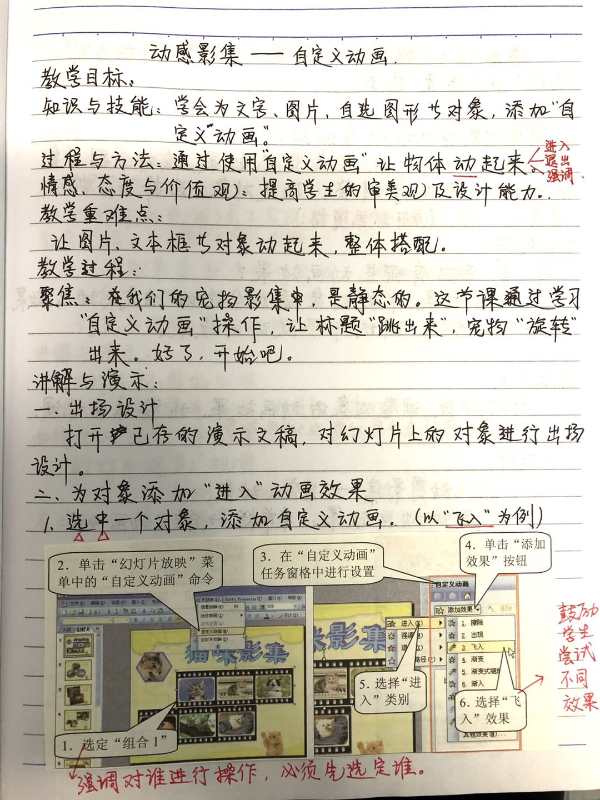 动感影集 —— 自定义动画.
教学目标:
知识与技能: 学会为文字、图片、自选图形等对象,添加"自
定义"动画"。
过程与方法: 通过使用"自定义动画"让物体动起来。
进入
退出
强调
情感、态度与价值观): 提高学生的审美观)及设计能力。
教学重难点:
让图片、文本框等对象动起来,整体搭配。
教学过程:
聚焦: 在我们的宠物影集中,是静态的。这节课通过学习
"自定义动画"操作,让标题"跳出来",宠物"旋转"
出来。好了,开始吧。
讲解与演示:
一、出场设计
打开已存的演示文稿,对幻灯片上的对象进行出场
设计。
二、为对象添加"进入"动画效果
1. 选中一个对象,添加自定义动画。(以"飞入"为例)
2. 单击"幻灯片放映"菜
单中的"自定义动画"命令
3. 在"自定义动画"
任务窗格中进行设置
4. 单击"添加
效果"按钮
自定义动画
添加效果
猫咪影集
影集
进入(E)
强调
路径(P)
1. 擦除
2. 出现
3. 飞入
4. 渐变
6. 渐入
5. 选择"进
入"类别
6. 选择"飞
入"效果
1. 选定"组合1"
鼓励
学生
尝试
不同
效果
强调对谁进行操作,必须先选定谁。